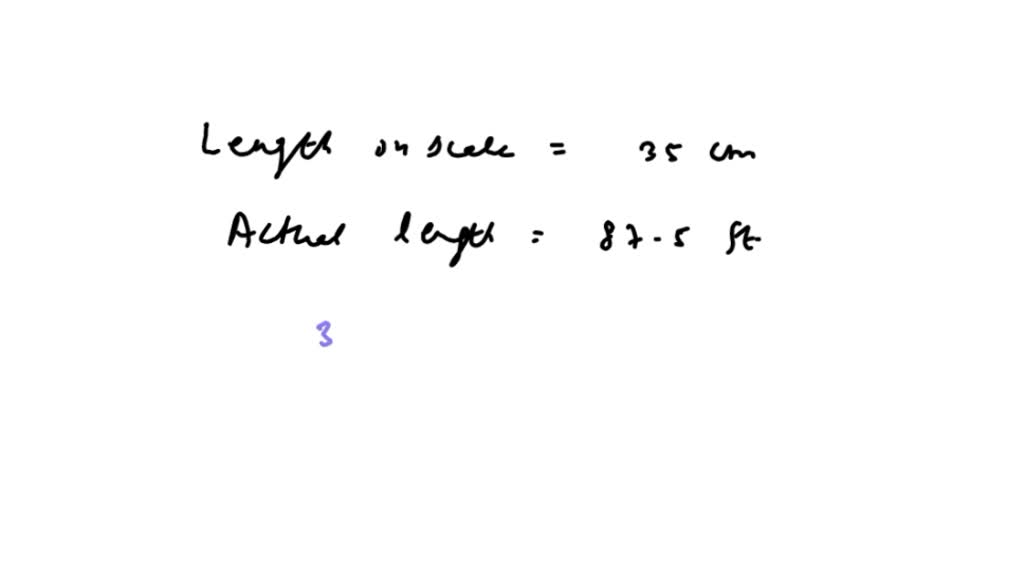 Length on scale = 35 cm
Actual length = 87.5 ft
3